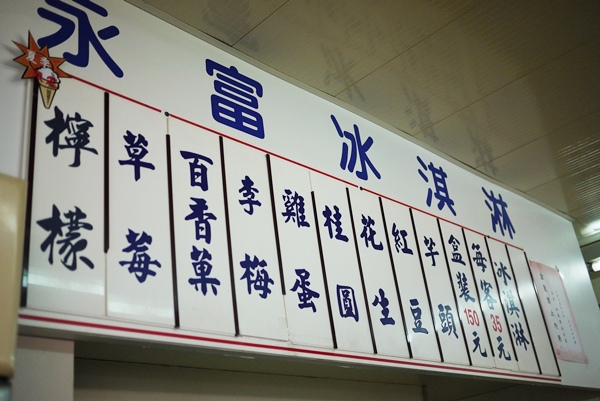 永富冰淇淋
冰淇淋
每客35元
盒裝150元
芋頭
紅豆
花生
桂圓
雞蛋
李梅
百香菓
草莓
檸檬